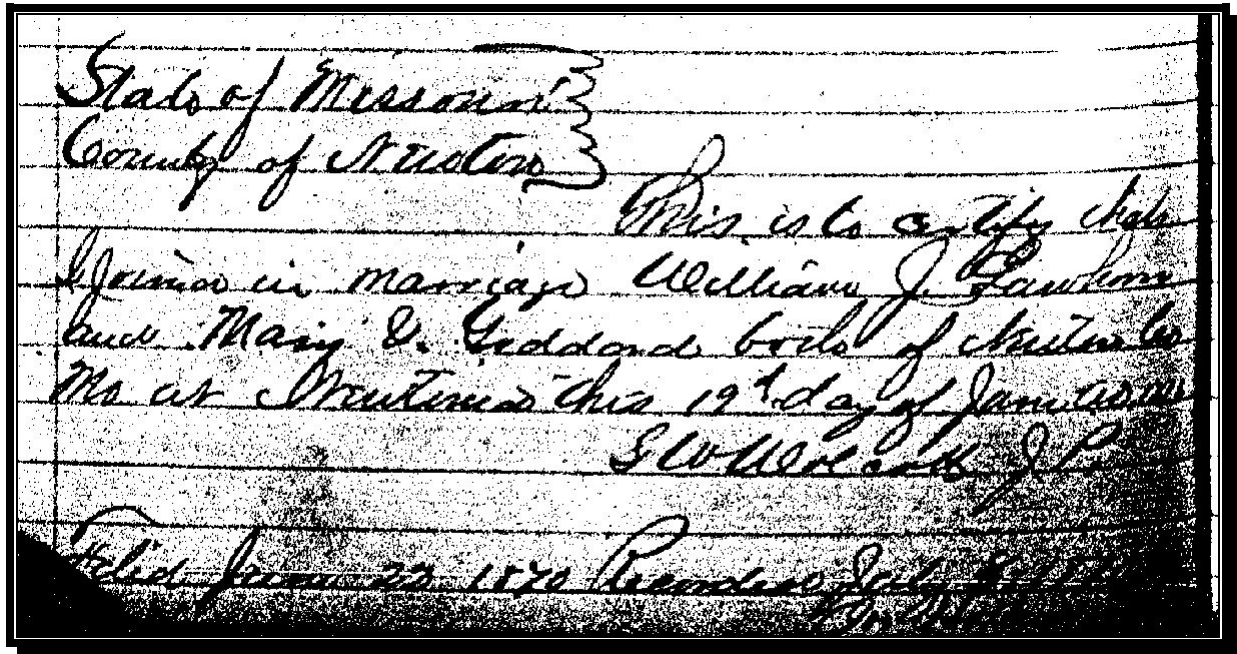 State of Missouri
County of Newton
This is to certify that
I Joined in marriage William J. Lawhorn
and Mary E. Goddard both of Newton Co
Mo at Newtonia this 19th day of January
G W Wolcott J. P.
Filed June 22 1870 Recorded July